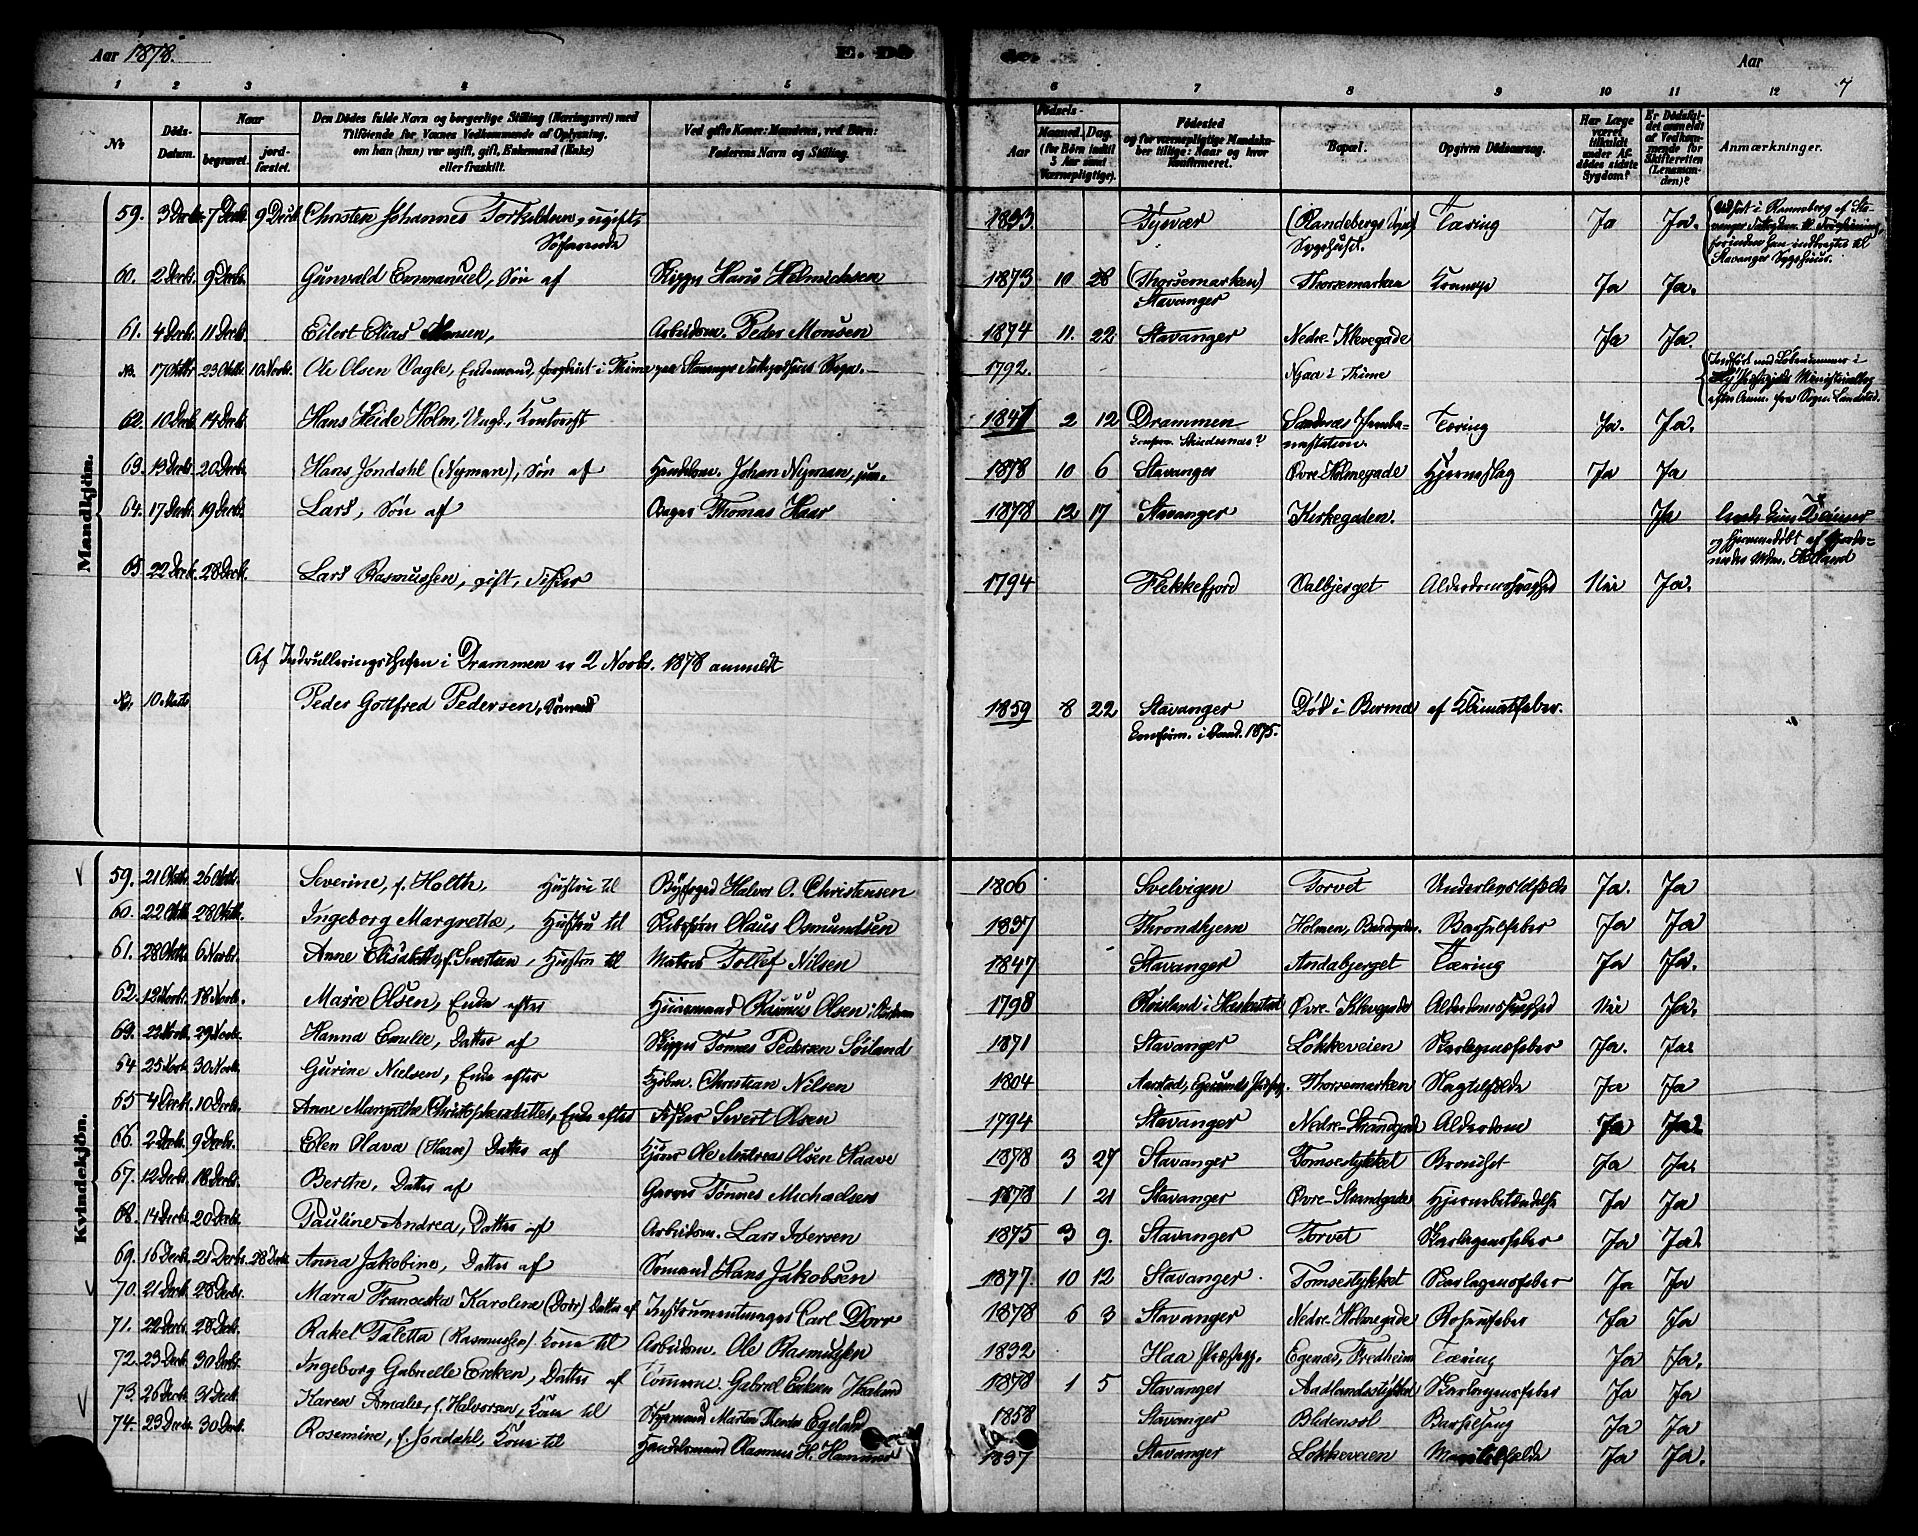 Aar 1878. E. Dö de. Aar 7
1 2 3 4 5 6 7 8 9 10 11 12
No Döds-Datum. Naar begravet. jordfæstet. Den Dödes fulde Navn og borgerlige Stilling (Næringsvei) med Tilföiende for Voxnes Vedkommende af Oplysning, om han (hun) var ugift, gift, Enkemand (Enke) eller fraskilt. Ved gifte Koner: Mandens, ved Börn: Faderens Navn og Stilling. Födsels- Aar Maaned. Dag. (for Börn indtil 5 Aar samt Værnepligtige). Födested og for værnepligtige Mandskaber tillige: Naar og hvor konfirmeret. Bopæl. Opgiven Dödsaarsag. Har Læge været tilkaldt under Afdödes sidste Sygdom? Er Dödsfaldet anmeldt af Vedkommende for Skifteretten (Lensmanden)? Anmærkninger.
Mandkjön.
59. 3 Decbr. 7 Decbr. 9 Decbr. Christen Johannes Torkildsen, ugift, Søfarende 1833 Tysvær Sygehuset. Tæring Ja Ja.
Stavanger Sygehuus.
60. 2 Decbr. 9 Decbr. Gunvald Emmanuel, Søn af Skipper Hans Helmichsen 1873 10 28 (Thorsemarken) Stavanger Thorsemarken Ja Ja.
61. 4 Decbr. 11 Decbr. Eilert Elias Monsen, Arbeidsm. Peder Monsen 1874 11. 22 Stavanger Nedre Klevegade Ja Ja.
Nb. 17 Oktbr 23 Oktbr. 10 Novbr. Ole Olsen Vagle, Enkemand, 1792. Njaa i Thime
62. 10 Decbr. 14 Decbr. Hans Heide Holm, Ungk., Kontorist 1847 2 12 Drammen Sandnæs Jernbanestation. Tæring Ja. Ja.
63. 13 Decbr. 20 Decbr. Hans Jøndahl (Nyman), Søn af Handelsm. Johan Nyman, jun. 1878 10 6 Stavanger Øvre Holmegade Hjerneslag Ja Ja
64. 17 Decbr. 19 Decbr. Lars, Søn af Bager Thomas Haar 1878 12 17 Stavanger Kirkegaden. Ja
og hjemmedøbt af Jordemoder Mdm. Helland
65 22 Decbr. 28 Decbr. Lars Rasmussen, gift, Fisker 1794 Flekkefjord Valbjerget Alderdomssvaghed Nei Ja.
Af Indrulleringschefen i Drammen er 2 Novbr. 1878 anmeldt
Nb. 10 Marts Peder Gotfred Pedersen, Sømand 1859 8 22 Stavanger Død i Burma af Klimatfeber.
Confirm. i Sand. 1875.
Kvindekjön.
59. 21 Oktbr. 26 Oktbr. Severine, f. Holth, Hustru til Byfoged Halvor O. Christensen 1806 Svelvigen Torvet Underlivslidelse Ja. Ja
60. 22 Oktbr. 28 Oktbr. Ingeborg Margrethe, Hustru til Olaus Osmundsen 1837 Throndhjem Holmen, Barselfeber Ja Ja
61. 28 Oktbr. 6 Novbr. Anne Elisabeth, f. Sivertsen, Hustru til Matros Tollef Nilsen 1847 Stavanger Andabjerget Tæring Ja Ja.
62. 12 Novbr. 18 Novbr. Marie Olsen, Enke efter Huusmand Rasmus Olsen 1798 Øvre Klevegade Alderdomssvaghed Nei Ja.
63. 22 Novbr. 29 Novbr. Hanna Emilie, Datter af Skipper Tønnes Pedersen Soiland 1871 Stavanger Løkkeveien Skarlagensfeber Ja. Ja.
64 25 Novbr. 30 Novbr. Gurine Nielsen, Enke efter Kjøbm. Christian Nilsen 1804 Aarstad, Thorsemarken Ja Ja
65 4 Decbr. 10 Decbr. Anne Margrethe Christophersdatter, Enke efter Fisker Sivert Olsen 1794 Stavanger Nedre Strandgade Alderdom Ja Ja.
66 2 Decbr. 9 Decbr. Elen Olava (Haave) Datter af Ole Andreas Olsen Haave 1878 3 27 Stavanger Tomsestykket Bronchit Ja Ja.
67. 12 Decbr. 18 Decbr. Berthe, Datter af Garver Tønnes Michaelsen 1878 1 21 Stavanger Øvre Strandgade Hjernebetændelse Ja Ja
68. 14 Decbr. 20 Decbr. Pauline Andrea, Datter af Arbeidsm. Lars Iversen 1875 3 9. Stavanger Torvet Skarlagensfeber Ja Ja.
69. 16 Decbr. 21 Decbr. 28 Decbr. Anna Jakobine, Datter af Sømand Hans Jakobsen 1877. 10 12 Stavanger Tomsestykket Skarlagensfeber Ja Ja
70. 21 Decbr. 28 Decbr. Maria Franciska Karoline (Dorr) Datter af Instrumentmager Carl Dorr 1878 6 3 Stavanger Nedre Holmegade Rosenfeber Ja Ja
71. 22 Decbr. 28 Decbr. Rakel Taletta (Rasmussen) Kone til Arbeidsm. Ole Rasmussen 1832 Haa Præstegj. Egenæs, Fredheim Tæring Ja Ja.
72. 23 Decbr. 30 Decbr. Ingeborg Gabrielle Ericksen, Datter af Tømmerm. Gabriel Ericksen Haaland 1878 1 5 Stavanger Aadlandsstykket Skarlagensfeber Ja Ja
73. 26 Decbr. 31 Decbr. Karen Amalie, f. Halvorsen, Kone til Styrmand Martin Egeland 1858 Stavanger Bledensol Barselseng Ja Ja
74. 23 Decbr. 30 Decbr. Rosemine, f. Jøndahl, Kone til Handelsmand Rasmus H. Hammer 1837 Stavanger Løkkeveien Ja Ja.